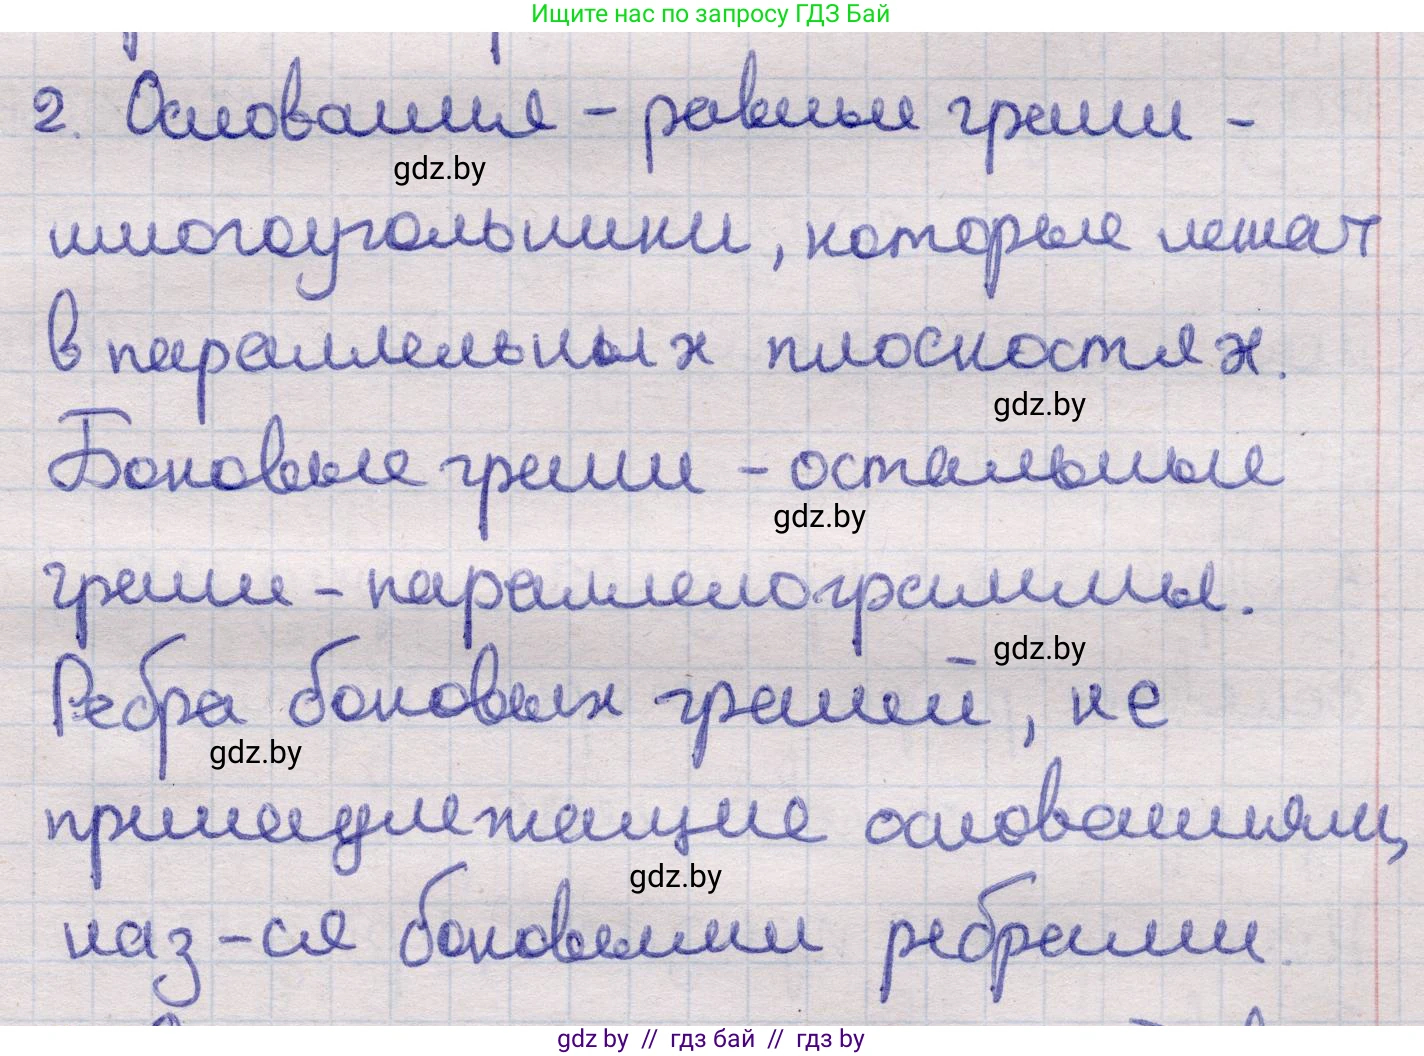 Ищите нас по запросу ГДЗ Бай
2. Основания - равные грани -
gdz.by
многоугольники, которые лежат
в параллельных плоскостях.
gdz.by
Боковые грани - остальные
gdz.by
грани - параллелограммы.
gdz.by
Ребра боковых граней, не
gdz.by
принадлежащие основаниям,
gdz.by
наз-ся боковыми ребрами.
gdz by // гдз бай // гдз by